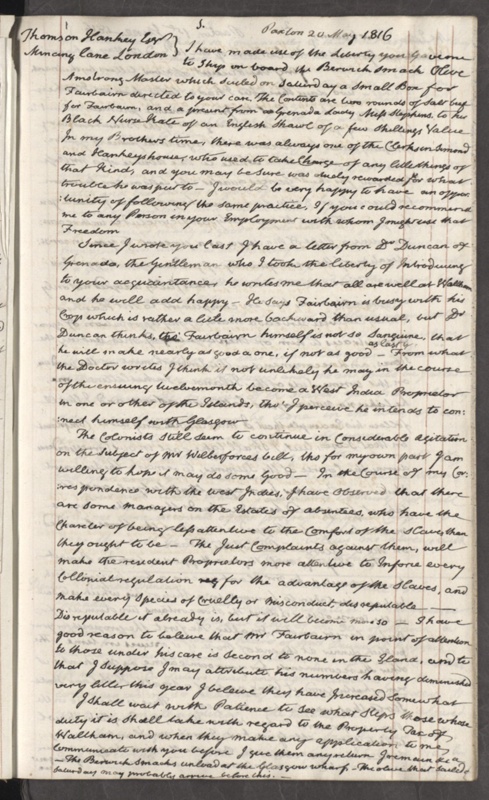 5.
Paxton 20 May 1816
Thomson Hankey Esqr
Mincing lane London } I have made use of the Liberty you Gave me
to Ship on board the Berwick Smack Olive
Armstrong Master which sailed on Saturday a Small Box for
Fairbairn directed to your care. The Contents are two rounds of Salt beef
for Fairbairn, and a present from a Grenada Lady Miss Stephens, to her
Black Nurse Kate of an English Shawl of a few Shillings Value
In my Brothers time, there was always one of the Clerks in Simond
and Hankeys house, who used to take Charge of any little things of
that Kind, and you may be Sure was duely rewarded for what
trouble he was put to — I would be very happy to have an oppor:
:tunity of following the same practice, If you could recommend
me to any Person in your Employment with whom I might use that
Freedom
Since I wrote you last I have a letter from Dr Duncan of
Grenada, the Gentleman who I took the liberty of Introducing
to your acquaintance, he writes me that all are well at Waltham
and he will add happy — He says Fairbairn is busy with his
Crop which is rather a little more backward than usual, but Dr
Duncan thinks, tho' Fairbairn himself is not so Sanguine, that
he will make nearly as good a one, if not as good as last yr — From what
the Doctor writes I think it not unlikely he may in the course
of the ensuing twelvemonth become a West India Proprietor
in one or other of the Islands, tho' I perceive he intends to con:
:nect himself with Glasgow
The Colonists Still seem to continue in Considerable agitation
on the Subject of Mr Wilberforces bill, tho for my own part I am
willing to hope it may do some Good — In the Course of my Cor:
:respondence with the West Indies, I have observed that there
are some managers on the Estates of absentees, who have the
Charecter of being less attentive to the Comfort of the Slaves than
they ought to be — The Just Complaints against them, will
make the resident Proprietors more attentive to Inforce every
Collonial regulation for the advantage of the Slaves, and
make every Species of Cruelty or misconduct disreputable —
Disreputable it already is, but it will become more so — I have
good reason to beleive that Mr Fairbairn in point of attention
to those under his care is Second to none in the Island, and to
that I Suppose I may attribute his numbers having diminished
very little this year I beleive they have Increased Somewhat
I Shall wait with Patience to See what Steps those whose
duty it is Shall take with regard to the Property Tax of
Waltham, and when they make any application to me,
Communicate with you before I give them any return I remain &c
— The Berwick Smacks unload at the Glasgow wharf — The Olive that Sailed
Saturday may probably arrive before this. —